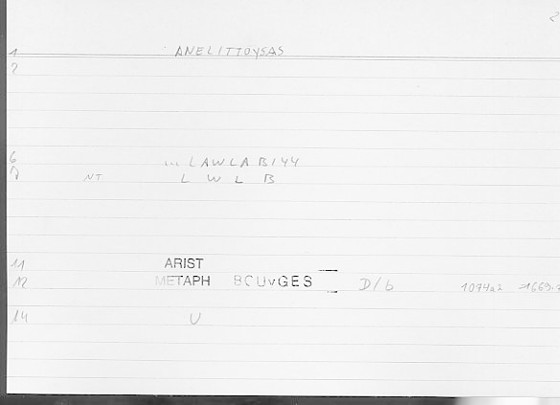 1 ANELITTOYSAS
2
6 ... LAWLABI44
7 NT L W L B
11 ARIST
12 METAPH BOUvGES D/b 1074a2
14 U